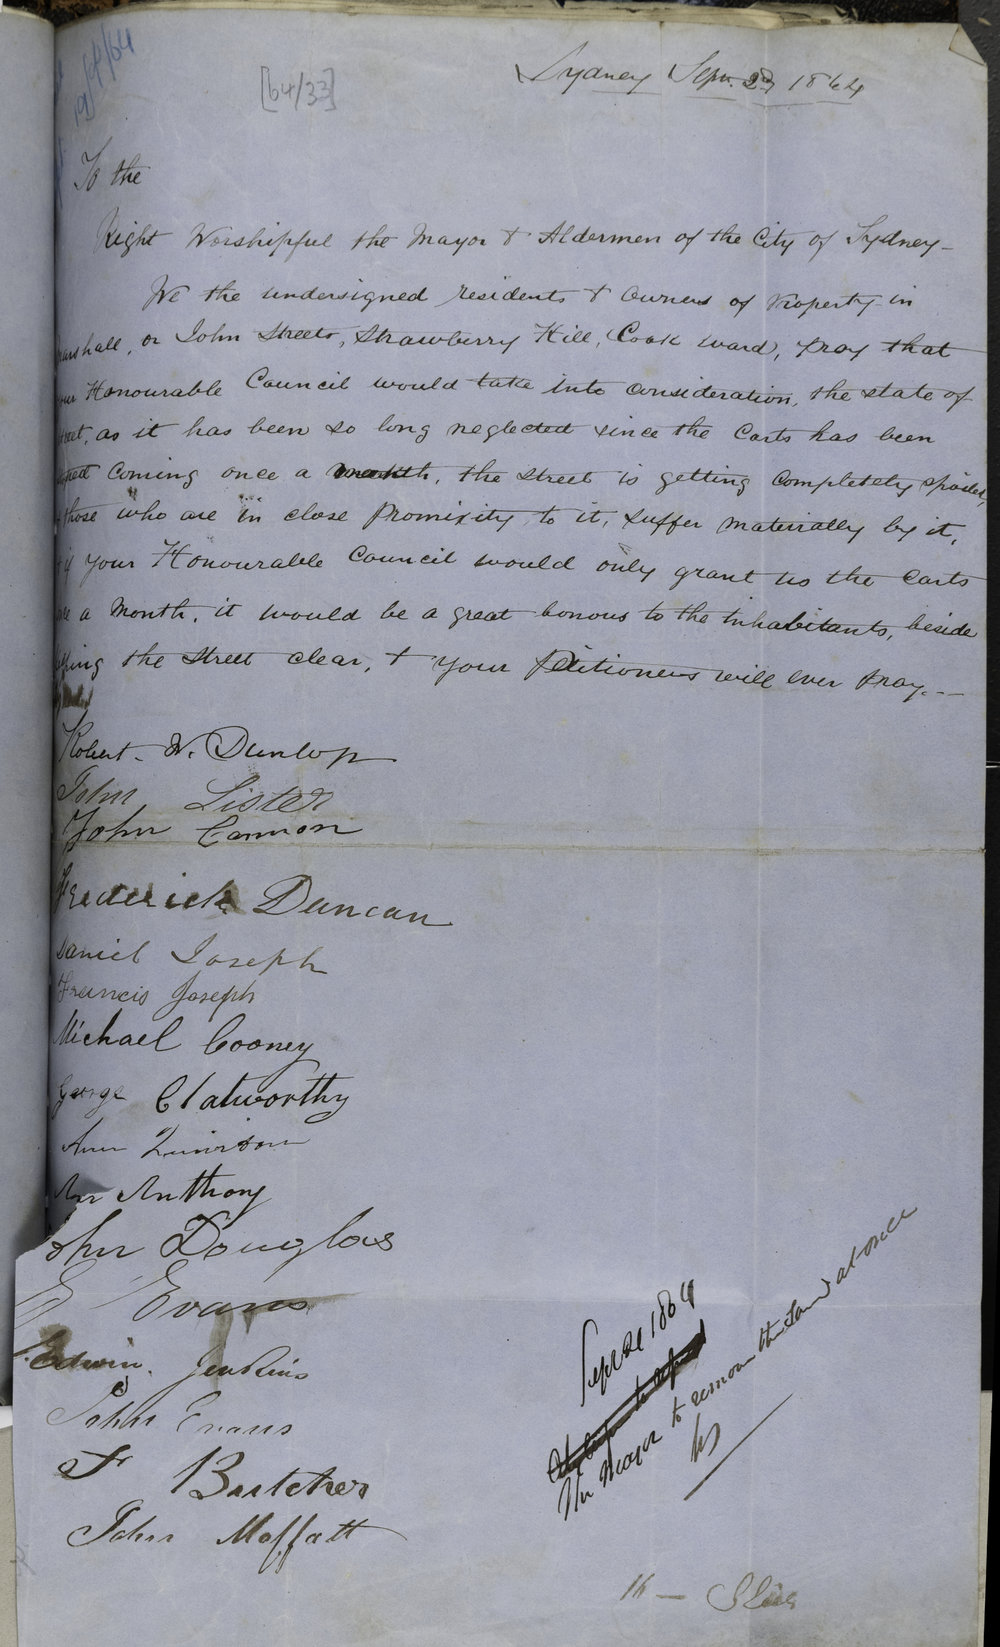 19/9/64
[64/33]
Sydney Sepr. 1864
To the
Right Worshipful the Mayor & Aldermen of the City of Sydney—
We the undersigned residents & Owners of Property in
arshall, or John Streets, Strawberry Hill, Cook ward, pray that
our Honourable Council would take into consideration, the state of
treet, as it has been so long neglected since the Carts has been
coming once a month, the Street is getting completely spoiled,
those who are in close Promixity to it, suffer materially by it,
if your Honourable Council would only grant us the Carts
a Month, it would be a great bonous to the Inhabitants, beside
the Street clear, & your Petitioners will ever pray.—
Robert W. Dunlop
John Lister
John Cannon
Frederick Duncan
Daniel Joseph
Francis Joseph
Michael Cooney
George Clatworthy
Ann
Anthony
ohn Douglas
E Evans
Edwin Jenkins
John Evans
F Butcher
John Moffatt
Sepr 1864
The Mayor to remove the Sand at once
16 —